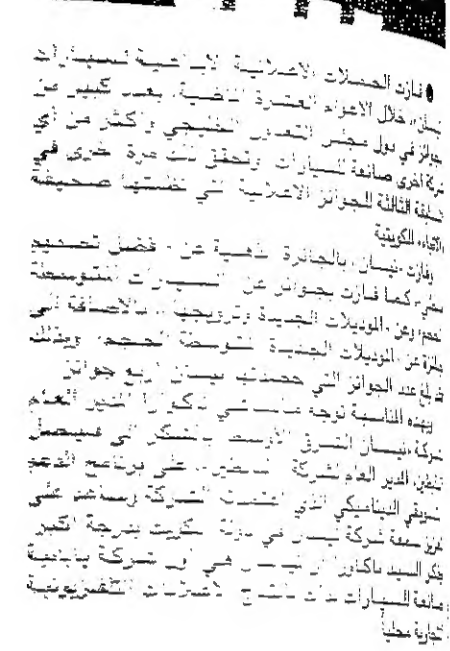 فازت الحملات الاعلانية الابداعية لسيارات
نيسان خلال الاعوام العشرة الماضية، بعدد كبير من
جوائز في دول مجلس التعاون الخليجي واكثر من أي
شركة أخرى صانعة للسيارات وتحقق ذلك مرة أخرى في
الحلقة الثالثة للجوائز الاعلانية التي نظمتها صحيفة
«الأنباء» الكويتية
وفازت «نيسان» بالجائزة الذهبية عن «فضل تصميم
محلي» كما فازت بجوائز عن السيارات المتوسطة
الحجم وعن الموديلات الجديدة وترويجها، بالاضافة الى
جائزة عن الموديلات الجديدة المتوسطة الحجم، وبذلك
بلغ عدد الجوائز التي حصدتها نيسان اربع جوائز
وبهذه المناسبة توجه ناكاورا المدير العام
لشركة نيسان الشرق الاوسط بالشكر الى فيصل
المدير العام لشركة على برنامج الدعم
التسويقي الديناميكي الذي اعتمدته الشركة وساعد على
تعزيز سمعة شركة نيسان في دولة الكويت بدرجة اكبر
وذكر السيد ناكاورا ان نيسان هي اول شركة يابانية
صانعة للسيارات بدأت بانتاج الاعلانات التلفزيونية
التجارية محلياً